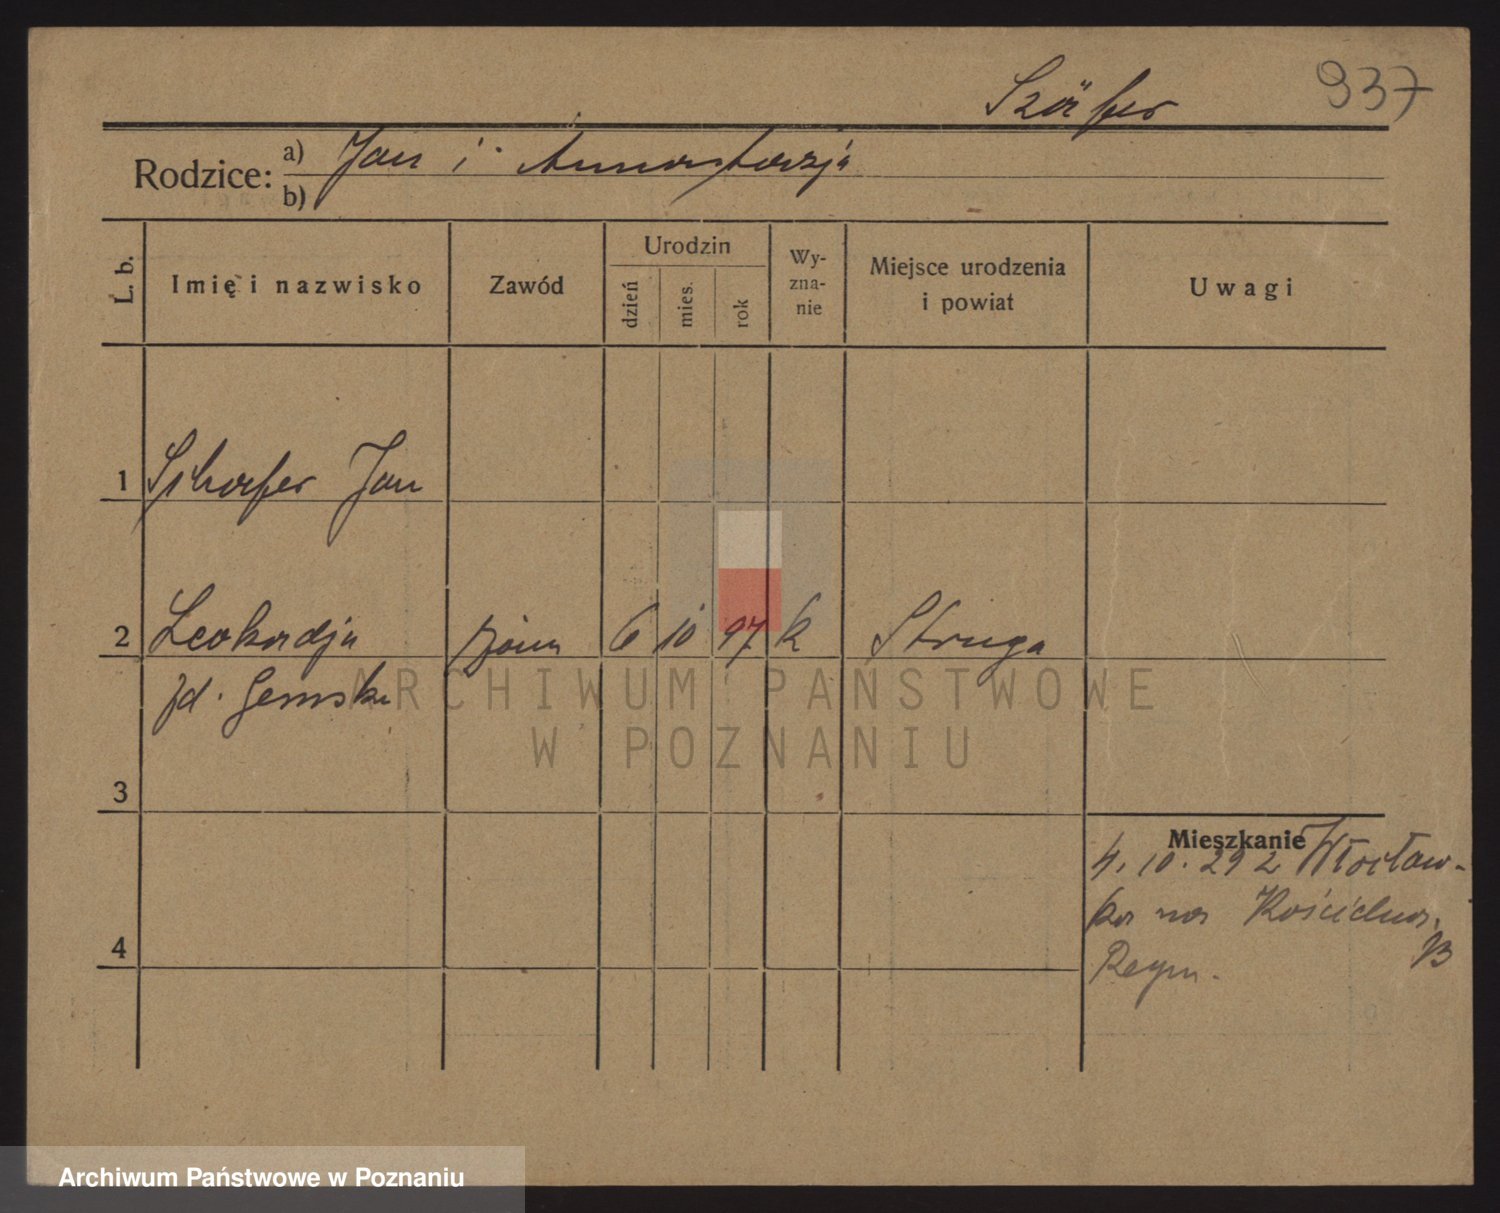 Szäfer 937
Rodzice: a) Jan i Anastazja
b)
L. b. Imię i nazwisko Zawód Urodzin dzień mies. rok Wy-zna-nie Miejsce urodzenia i powiat Uwagi
1 Schäfer Jan
2 Leokadja żona 6 10 97 k Struga
zd. Gemska
3
4
Mieszkanie
4. 10. 29 z Włocław-
ka na Kościelna.
B
ARCHIWUM PAŃSTWOWE
W POZNANIU
Archiwum Państwowe w Poznaniu